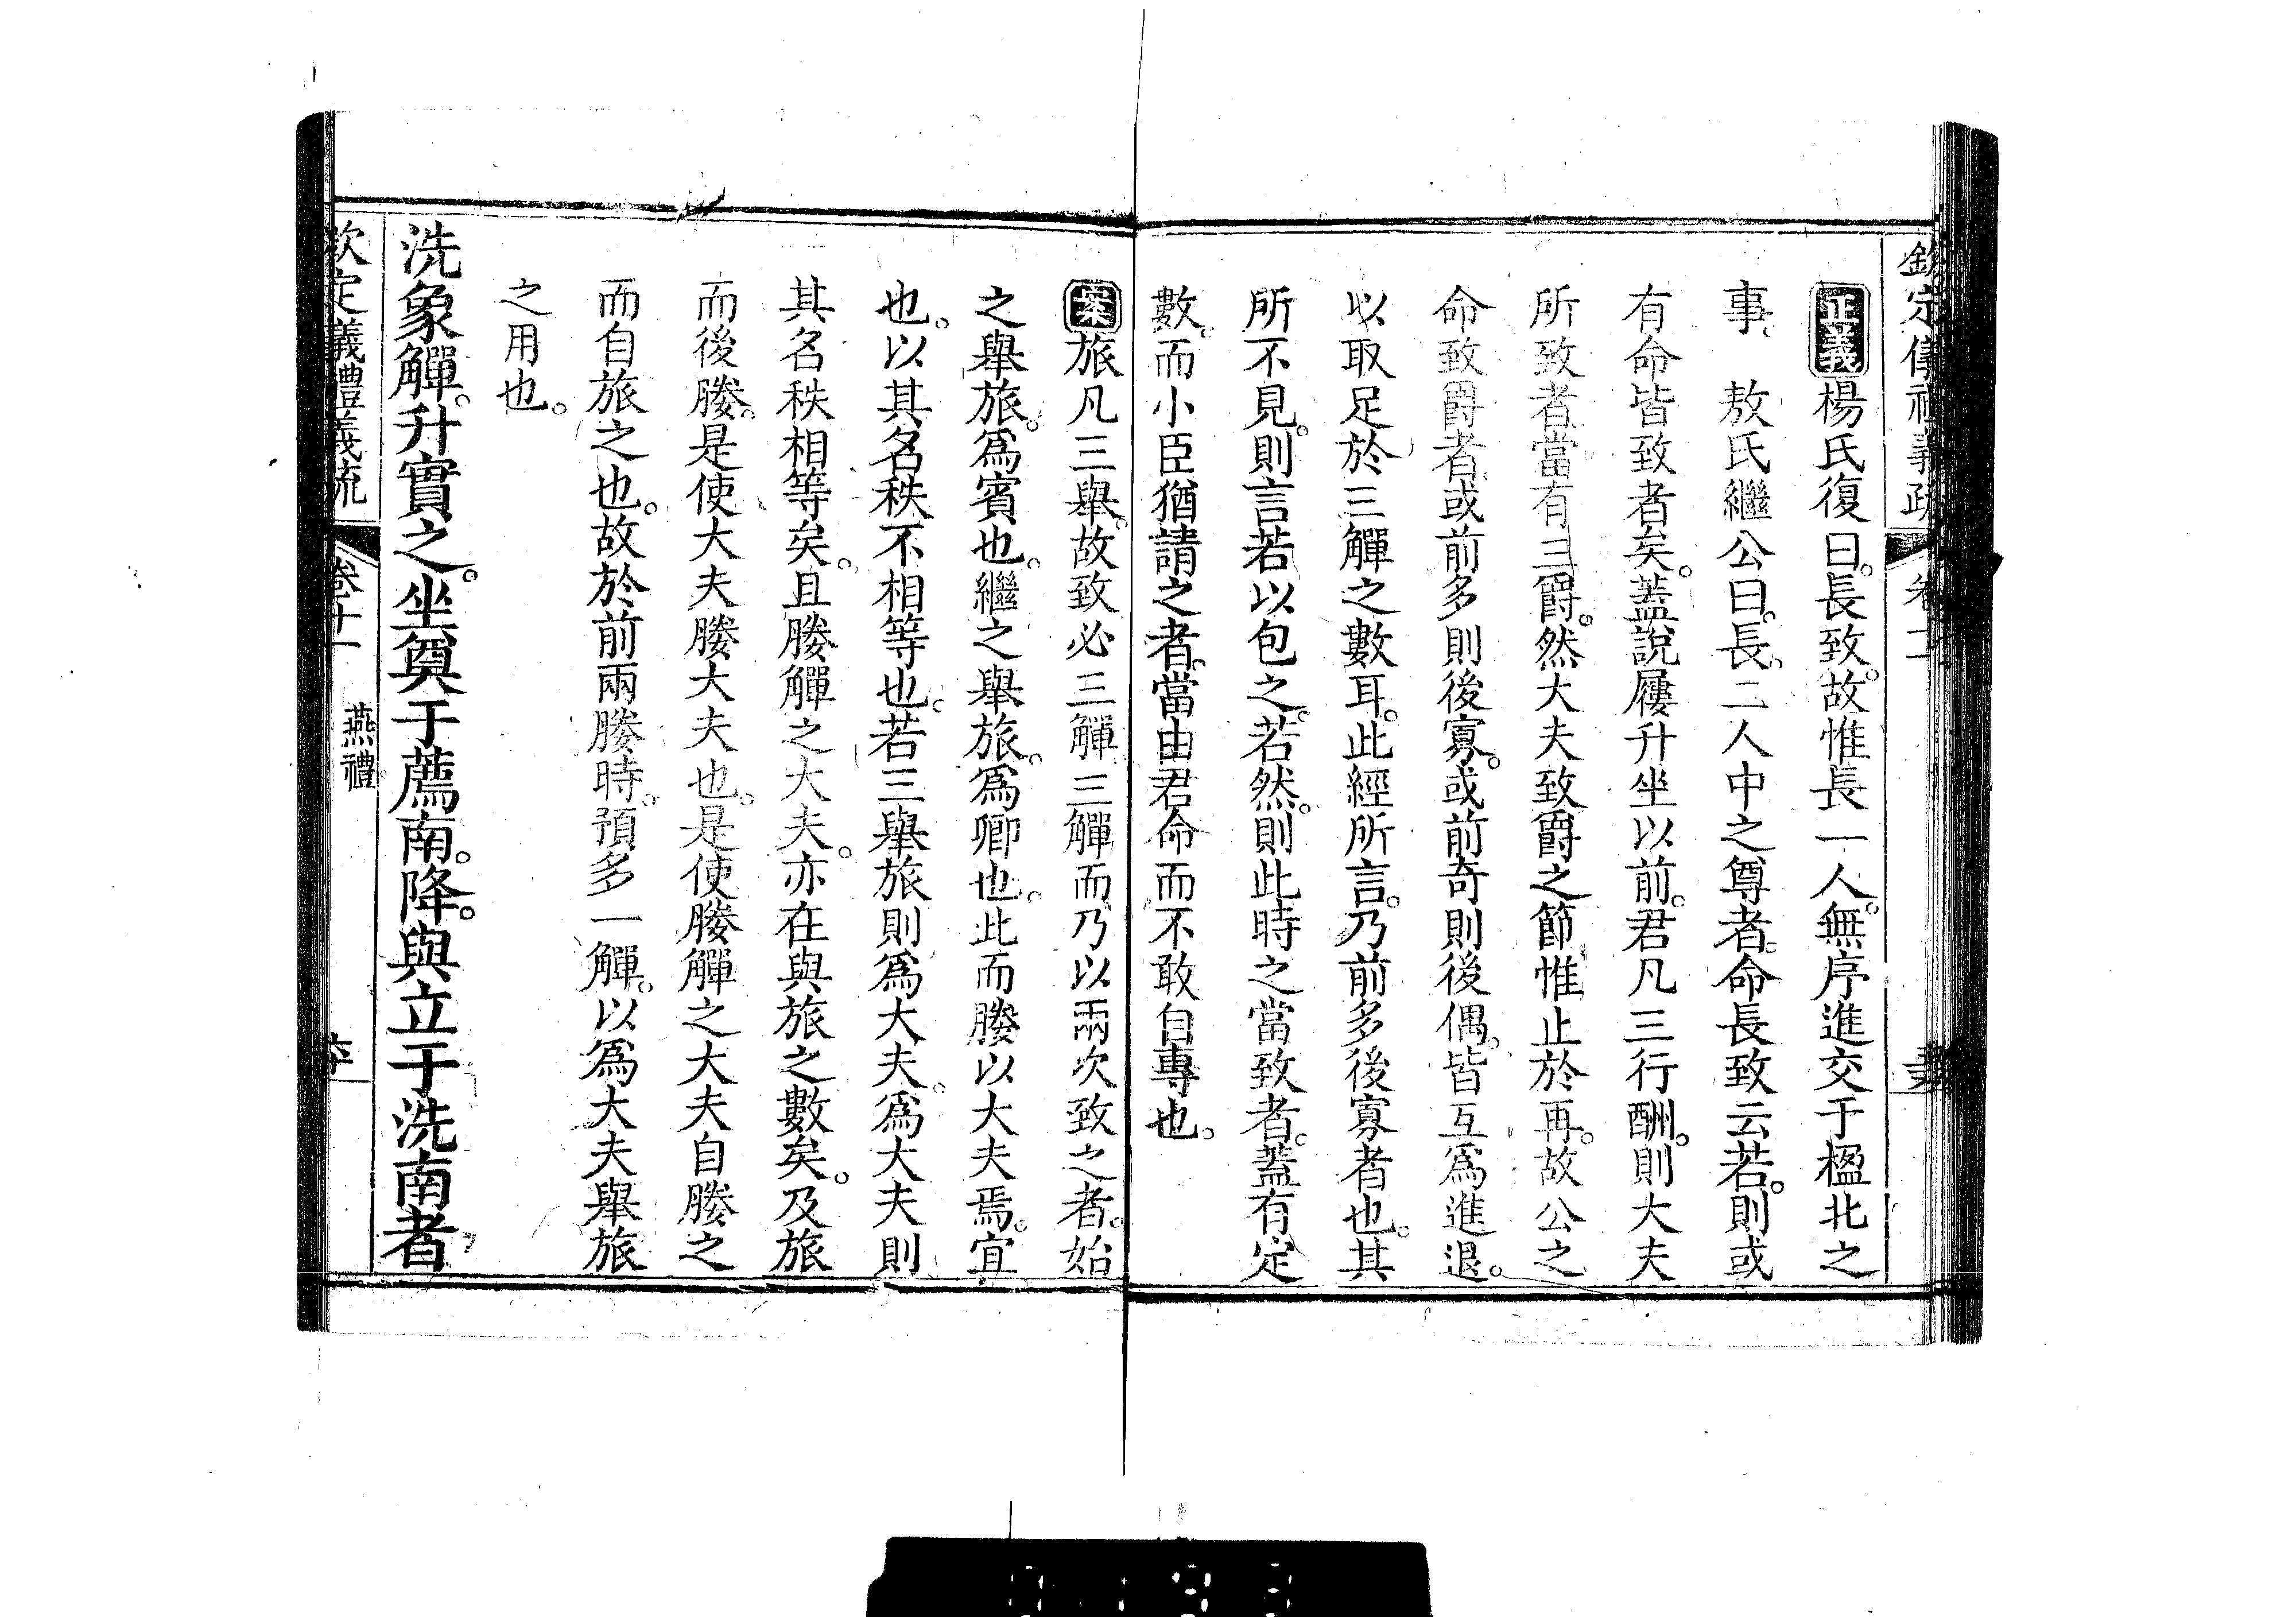 欽定儀禮義疏 卷十一
正義楊氏復曰。長致。故惟長一人。無序進交于楹北之
事。 敖氏繼公曰。長。二人中之尊者。命長致云若。則或
有命皆致者矣。蓋說屨升坐以前。君凡三行酬。則大夫
所致者當有三爵。然大夫致爵之節惟止於再。故公之
命致爵者。或前多則後寡。或前奇則後偶。皆互爲進退。
以取足於三觶之數耳。此經所言。乃前多後寡者也。其
所不見。則言若以包之。若然。則此時之當致者。蓋有定
數。而小臣猶請之者。當由君命而不敢自專也。
案旅凡三舉。故致必三觶。三觶而乃以兩次致之者。始
之舉旅。爲賓也。繼之舉旅。爲卿也。此而媵以大夫焉。宜
也。以其名秩不相等也。若三舉旅則爲大夫。爲大夫則
其名秩相等矣。且媵觶之大夫。亦在與旅之數矣。及旅
而後媵。是使大夫媵大夫也。是使媵觶之大夫自媵之
而自旅之也。故於前兩媵時。預多一觶。以爲大夫舉旅
之用也。
洗象觶。升實之。坐奠于薦南。降。與立于洗南者
欽定義禮義疏 卷十一 燕禮